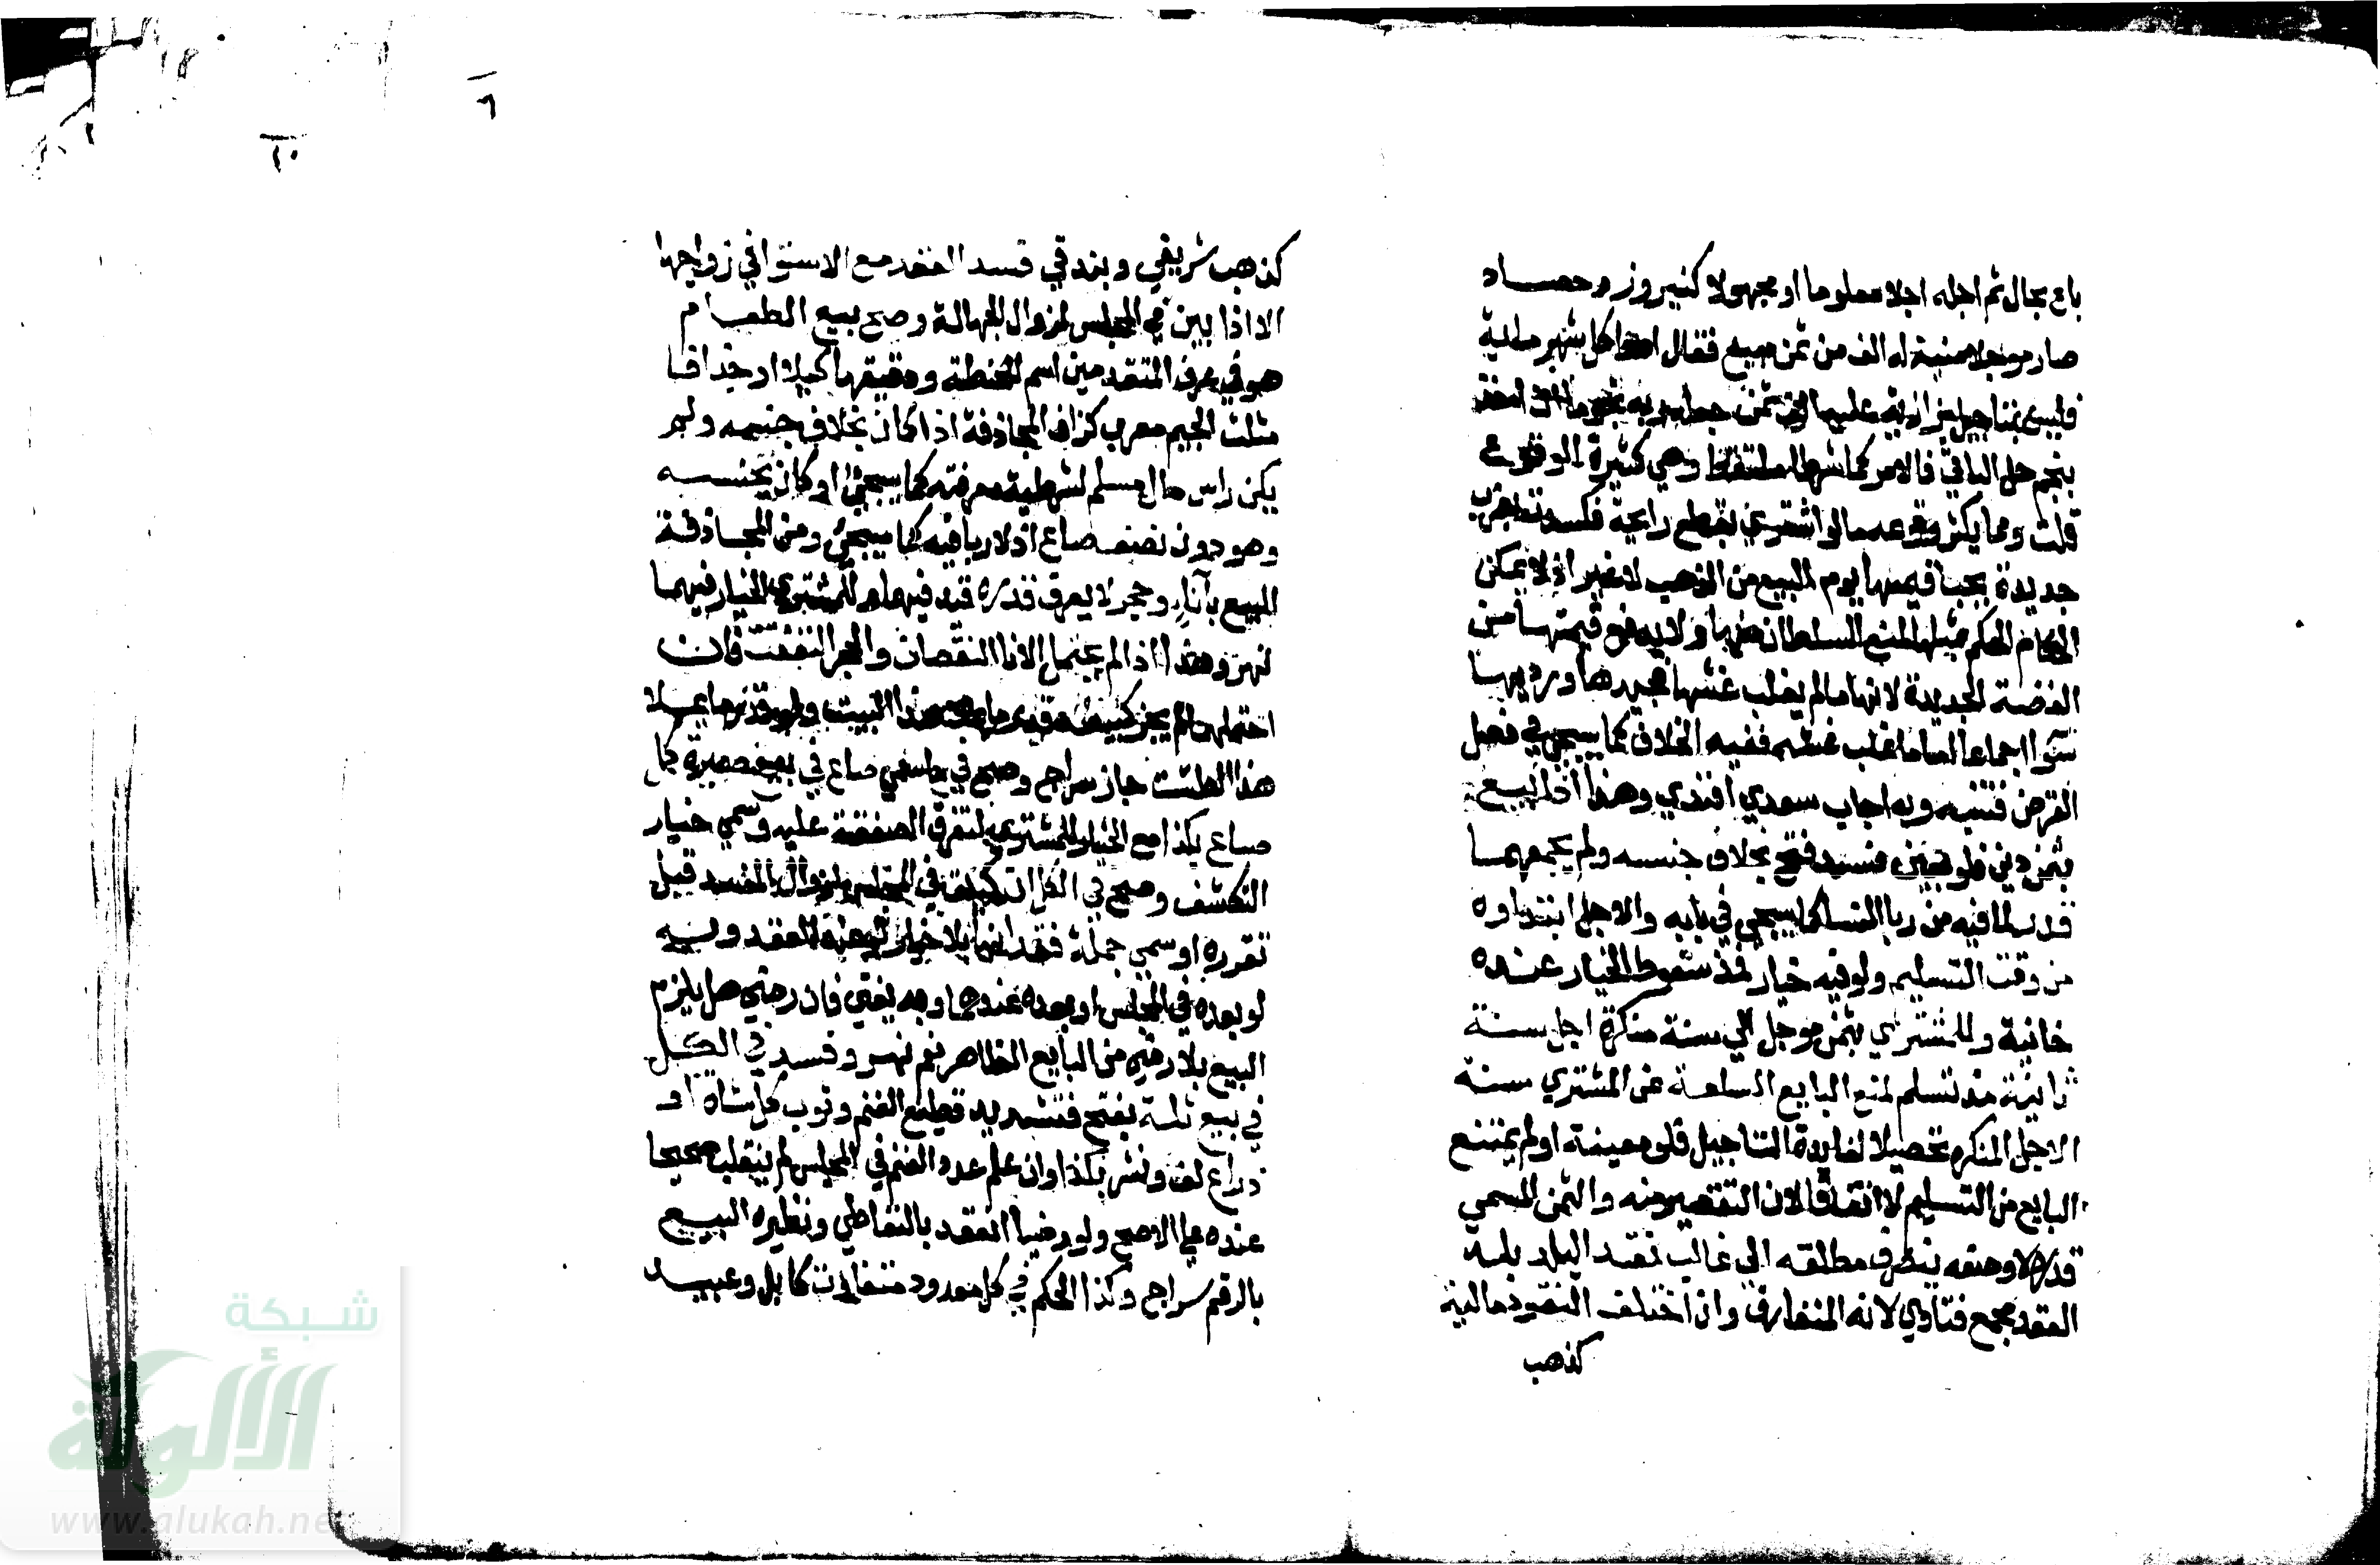 باع بحال ثم اجله اجلا معلوما او مجهولا كنيروز وحصاد
صار موجلا منية له الف من ثمن مبيع فقال اعط كل شهر ماية
فليس بتاجيل بزازية عليه الف ثمن جعله ربه نجوما ان اخل
بنجم حل الباقي فالامر كما شرطا ملتقط وهي كثيرة الوقوع
قلت ومما يكثر وقوعه ما لو اشتري بقطع رايجة فكسدت بضرب
جديدة يجب قيمتها يوم البيع من الذهب لا غير اذ لا يمكن
الحكام الحكم بمثلها لمنع السلطان منها ولا يدفع قيمتها من
الفضة الجديدة لانها ما لم يغلب غشها فجيدها ورديها
سوا اجماعا اما ما غلب غشه ففيه الخلاف كما سيجي في فصل
القرض فتنبه وبه اجاب سعدي افندي وهذا اذا بيع
بثمن دين فلو بعين فسد فتح بخلاف جنسه ولم يجمعهما
قدر لما فيه من ربا النسا كما سيجي في بابه والاجل ابتداوه
من وقت التسليم ولو فيه خيار فمذ سقوط الخيار عنده
خانية وللمشتري بثمن موجل الي سنة منكرة اجل سنة
ثانية مذ تسلم لمنع البايع السلعة عن المشتري سنة
الاجل المنكرة تحصيلا لفايدة التاجيل فلو معينة او لم يمتنع
البايع من التسليم لا اتفاقا لان التقصير منه والثمن المسمي
قدره لا وصفه ينصرف مطلقه الي غالب نقد البلد بلد
العقد مجمع فتاوي لانه المتعارف وان اختلف النقود مالية
كذهب
٦
١٠
كذهب شريفي وبندقي فسد العقد مع الاستوا في رواجها
الا اذا بين في المجلس لزوال الجهالة وصح بيع الطعام
هو في عرف المتقدمين اسم للحنطة ودقيقها كيلا وجزافا
مثلث الجيم معرب كزاف المجازفة اذا كان بخلاف جنسه ولم
يكن راس مال مسلم لشرطية معرفته كما سيجي او كان بجنسه
وهو دون نصف صاع اذ لا ربا فيه كما سيجي ومن المجازفة
البيع باناء وحجر لا يعرف قدره قيد فيهما وللمشتري الخيار فيهما
نهر وهذا اذا لم يحتمل الانا النقصان والحجر التفتت فان
احتملهما لم يجز كبيعه قدر ما يملا هذا البيت ولو قدر ما يملا
هذا الطست جاز سراج وصح في ما سمي صاع في بيع صبرة كل
صاع بكذا مع الخيار للمشتري لتفرق الصفقة عليه وسمي خيار
التكشف وصح في الكل ان كيلت في المجلس لزوال المفسد قبل
تقرره او سمي جملة قفزانها بلا خيار لو عند العقد وبه
لو بعده في المجلس او بعده عندهما وبه يفتي فان رضي هل يلزم
البيع بلا رضي من البايع الظاهر نعم نهر وفسد في الكل
في بيع ثلة بفتح فتشديد قطيع الغنم وثوب كل شاة او
ذراع لف ونشر بكذا وان علم عدد الغنم في المجلس لم ينقلب صحيحا
عنده علي الاصح ولو رضيا انعقد بالتعاطي ونظيره البيع
بالرقم سراج وكذا الحكم في كل معدود متفاوت كابل وعبيد
شبكة
الألوكة
www.alukah.ne